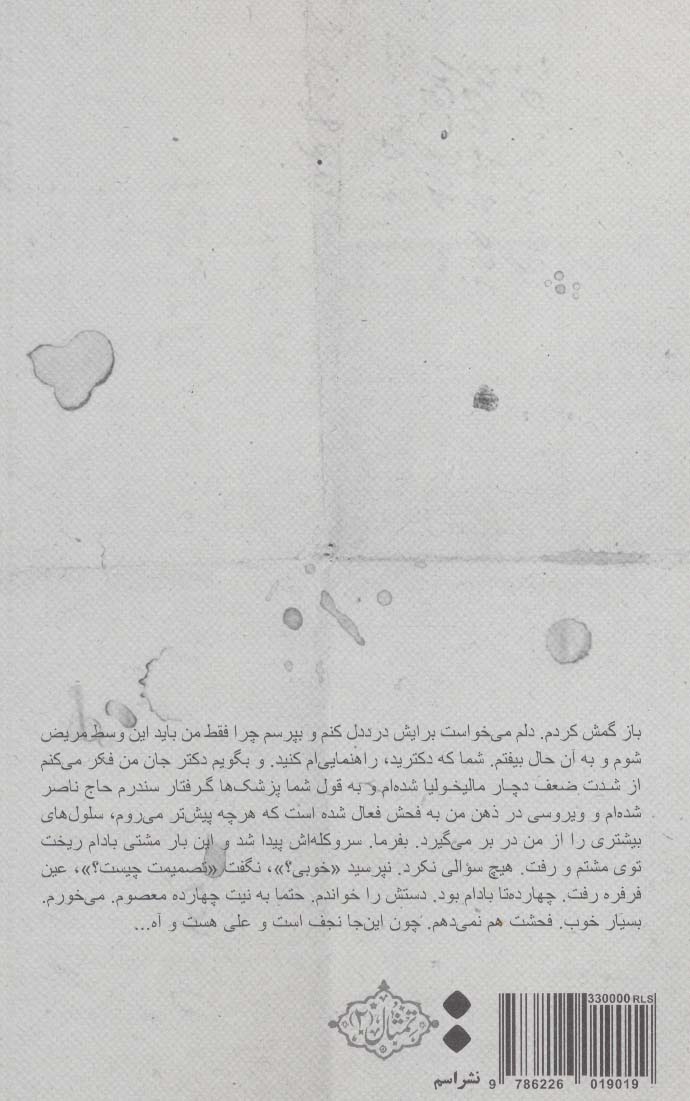 باز گمش کردم. دلم می‌خواست برایش درددل کنم و بپرسم چرا فقط من باید این وسط مریض
شوم و به آن حال بیفتم. شما که دکترید، راهنمایی‌ام کنید. و بگویم دکتر جان من فکر می‌کنم
از شدت ضعف دچار مالیخولیا شده‌ام و به قول شما پزشک‌ها گرفتار سندرم حاج ناصر
شده‌ام و ویروسی در ذهن من به فحش فعال شده است که هرچه پیش‌تر می‌روم، سلول‌های
بیشتری را از من در بر می‌گیرد. بفرما. سروکله‌اش پیدا شد و این بار مشتی بادام ریخت
توی مشتم و رفت. هیچ سؤالی نکرد. نپرسید «خوبی؟»، نگفت «تصمیمت چیست؟»، عین
فرفره رفت. چهارده‌تا بادام بود. دستش را خواندم. حتما به نیت چهارده معصوم. می‌خورم.
بسیار خوب. فحشت هم نمی‌دهم. چون این‌جا نجف است و علی هست و آه...
تمثال (۲)
نشر اسم
330000 RLS
9 786226 019019